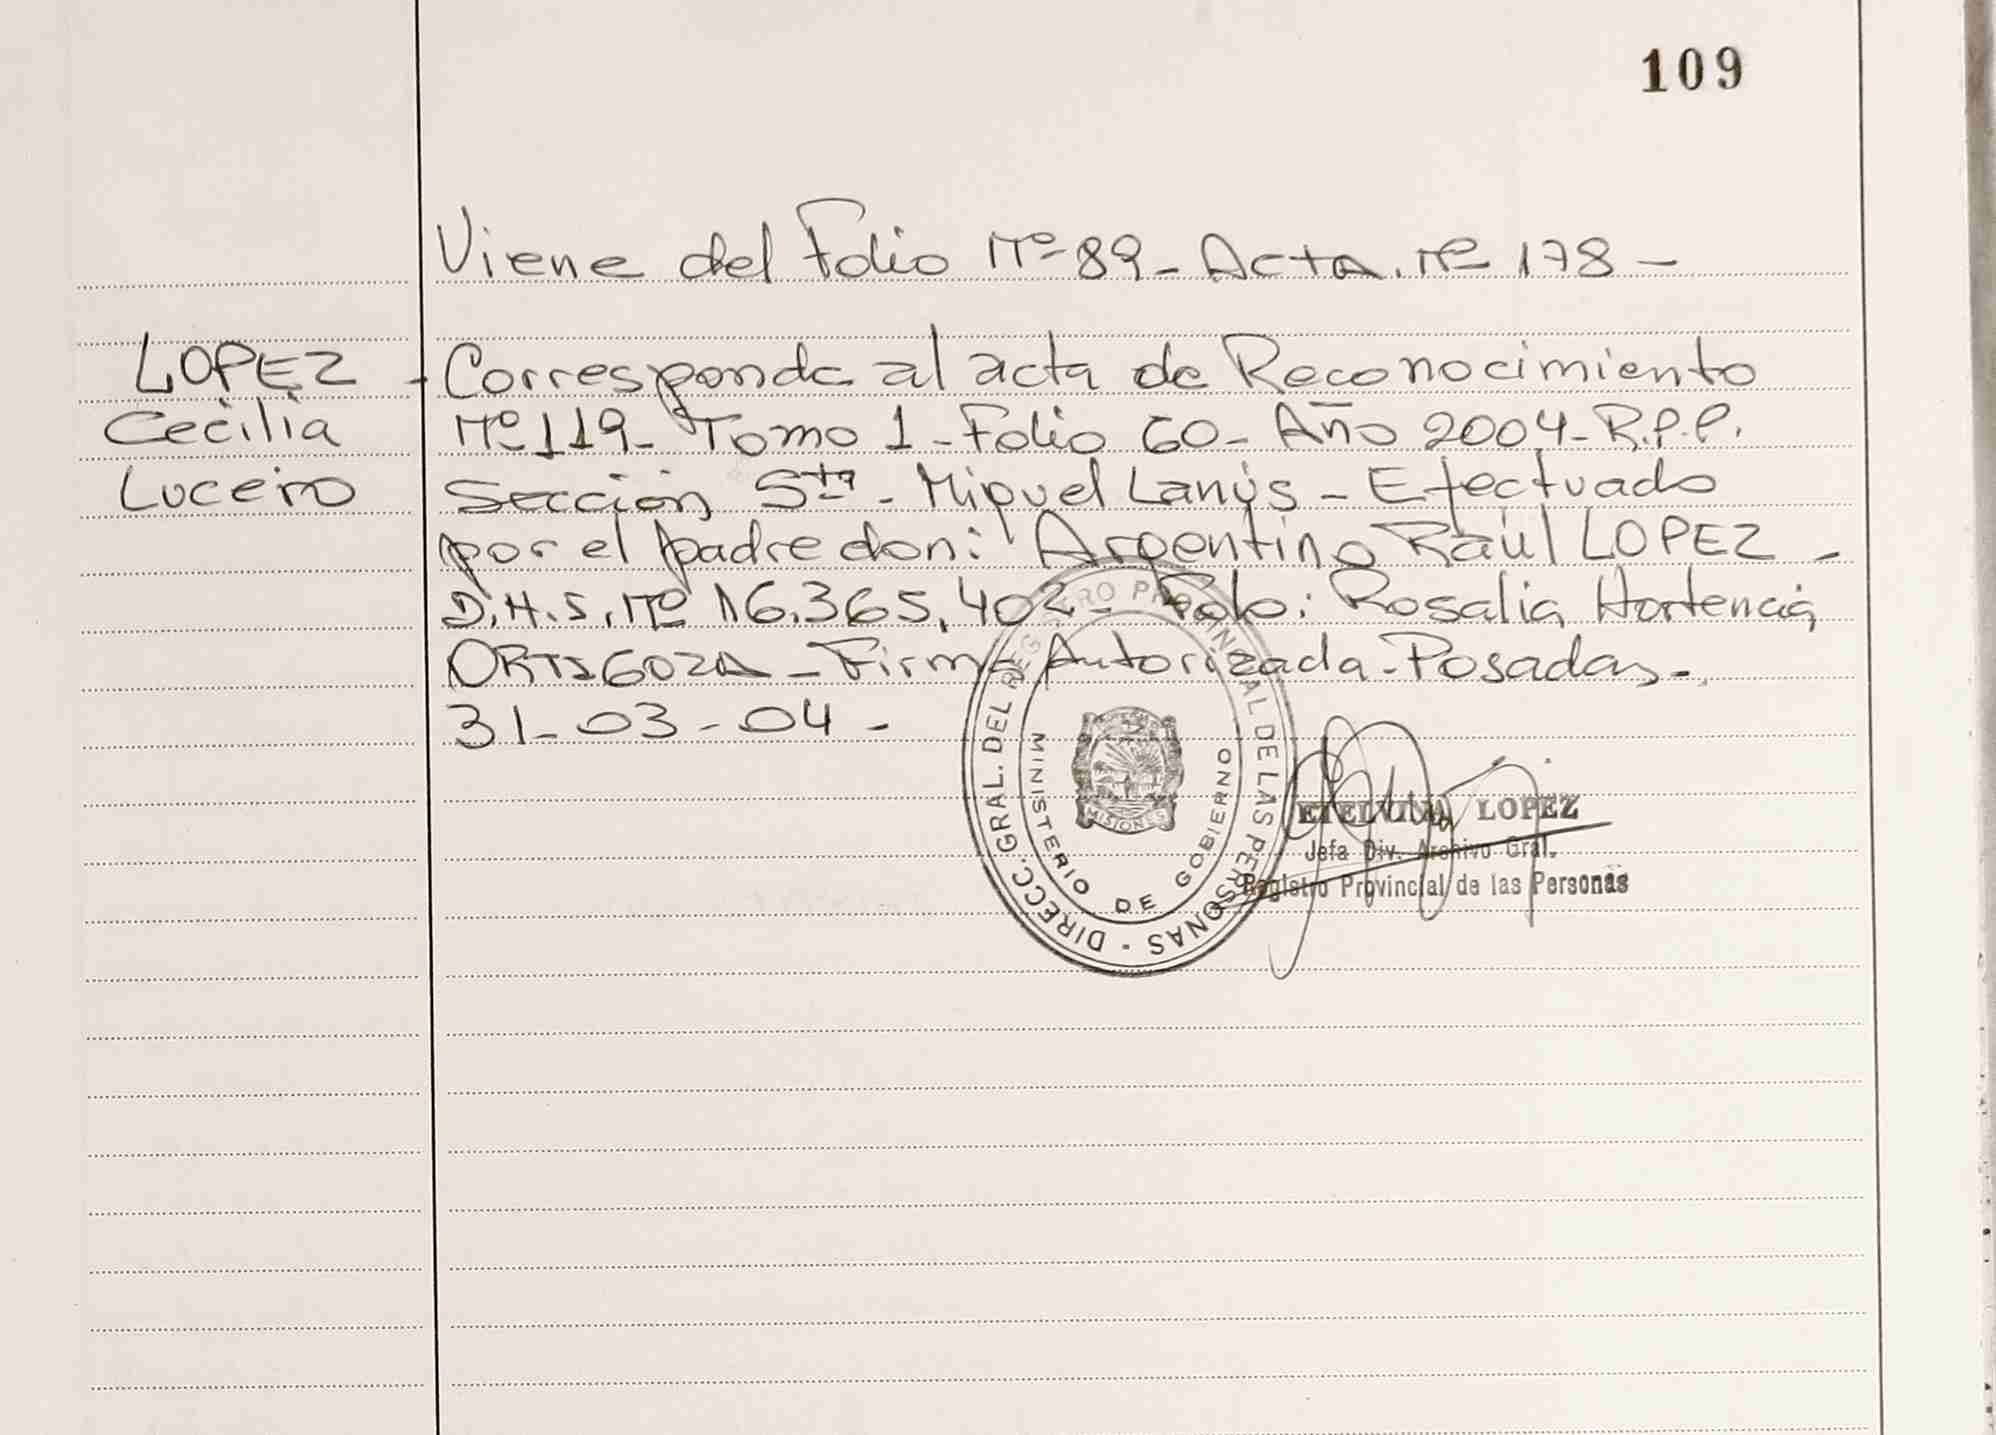 109
Viene del Folio Nº 89 - Acta. Nº 178 -
LOPEZ
Cecilia
Lucero
- Corresponde al acta de Reconocimiento
Nº 119 - Tomo 1 - Folio 60 - Año 2004 - R.P.P.
Sección 5ta - Miguel Lanús - Efectuado
por el padre don: Argentino Raúl LOPEZ -
Nº 16.365.402 - Fdo: Rosalia Hortencia
ORTIGOZA - Firma Autorizada - Posadas -
31 - 03 - 04 -
DIRECC. GRAL. DEL REGISTRO PROVINCIAL DE LAS PERSONAS -
MINISTERIO DE GOBIERNO
MISIONES
ETELVINA LOPEZ
Jefa Div. Archivo Gral.
Registro Provincial de las Personas